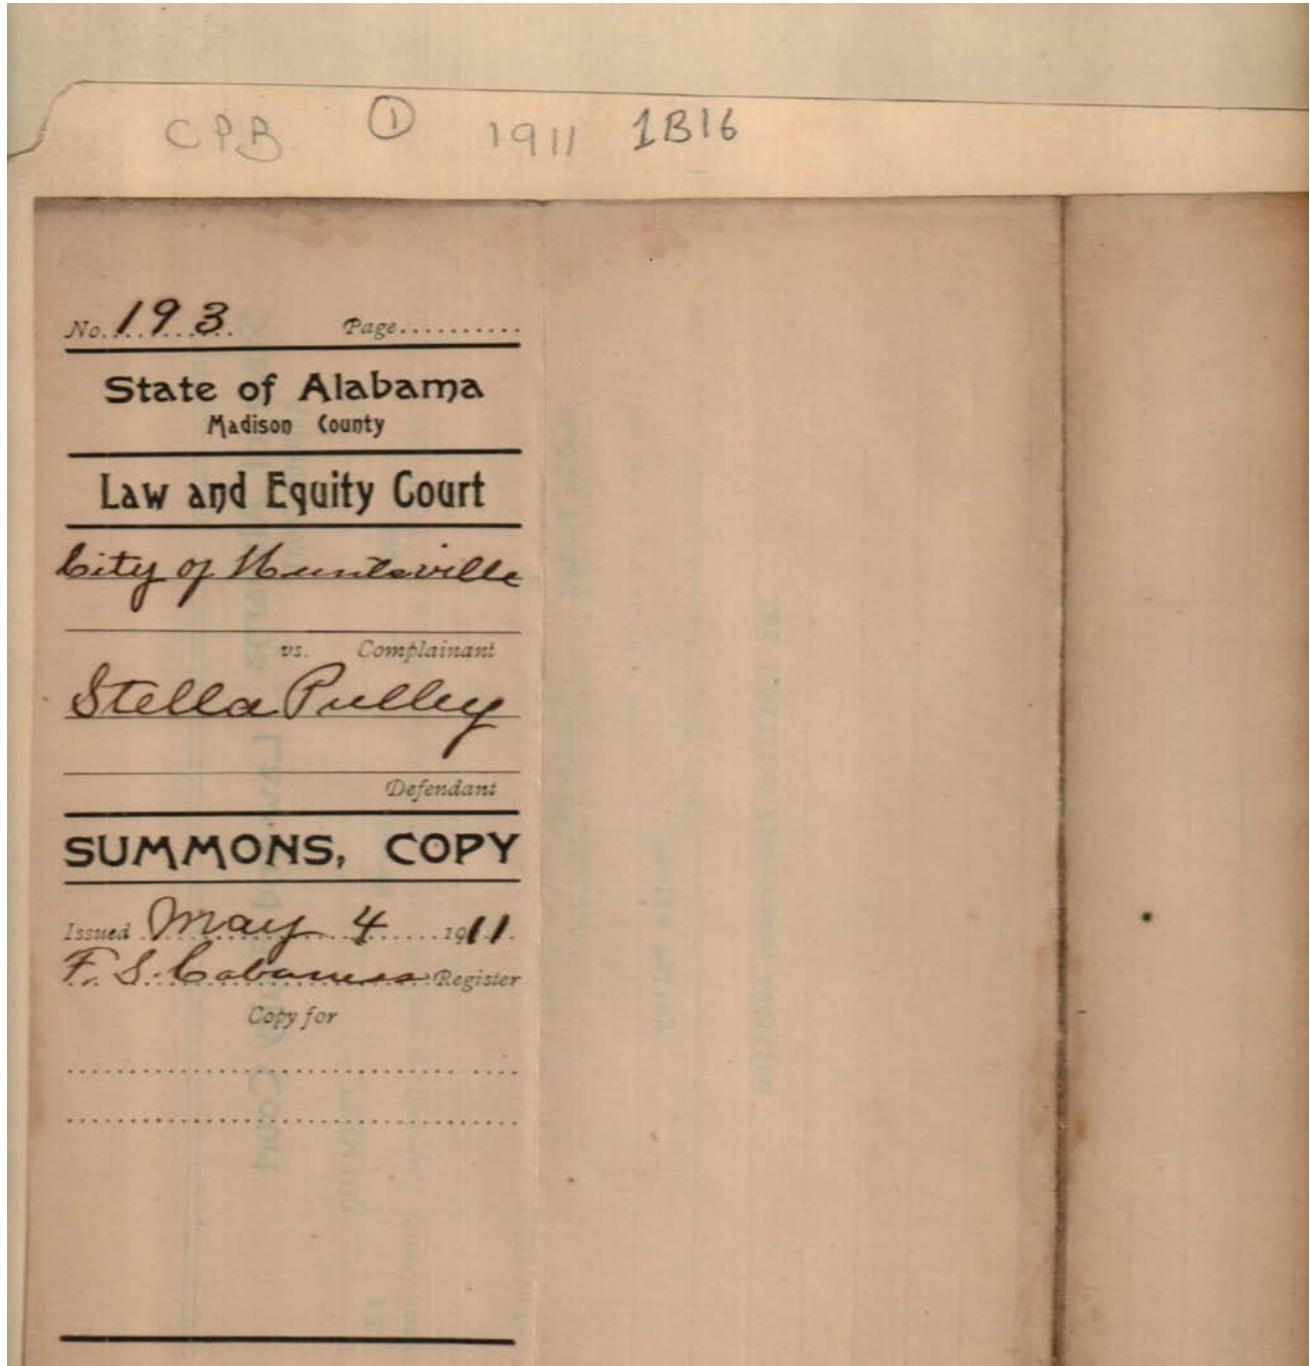 CPB ① 1911 1B16
No. 193. Page..........
State of Alabama
Madison County
Law and Equity Court
City of Huntsville
vs. Complainant
Stella Pulley
Defendant
SUMMONS, COPY
Issued May 4 1911.
F. S. Cabaness Register
Copy for